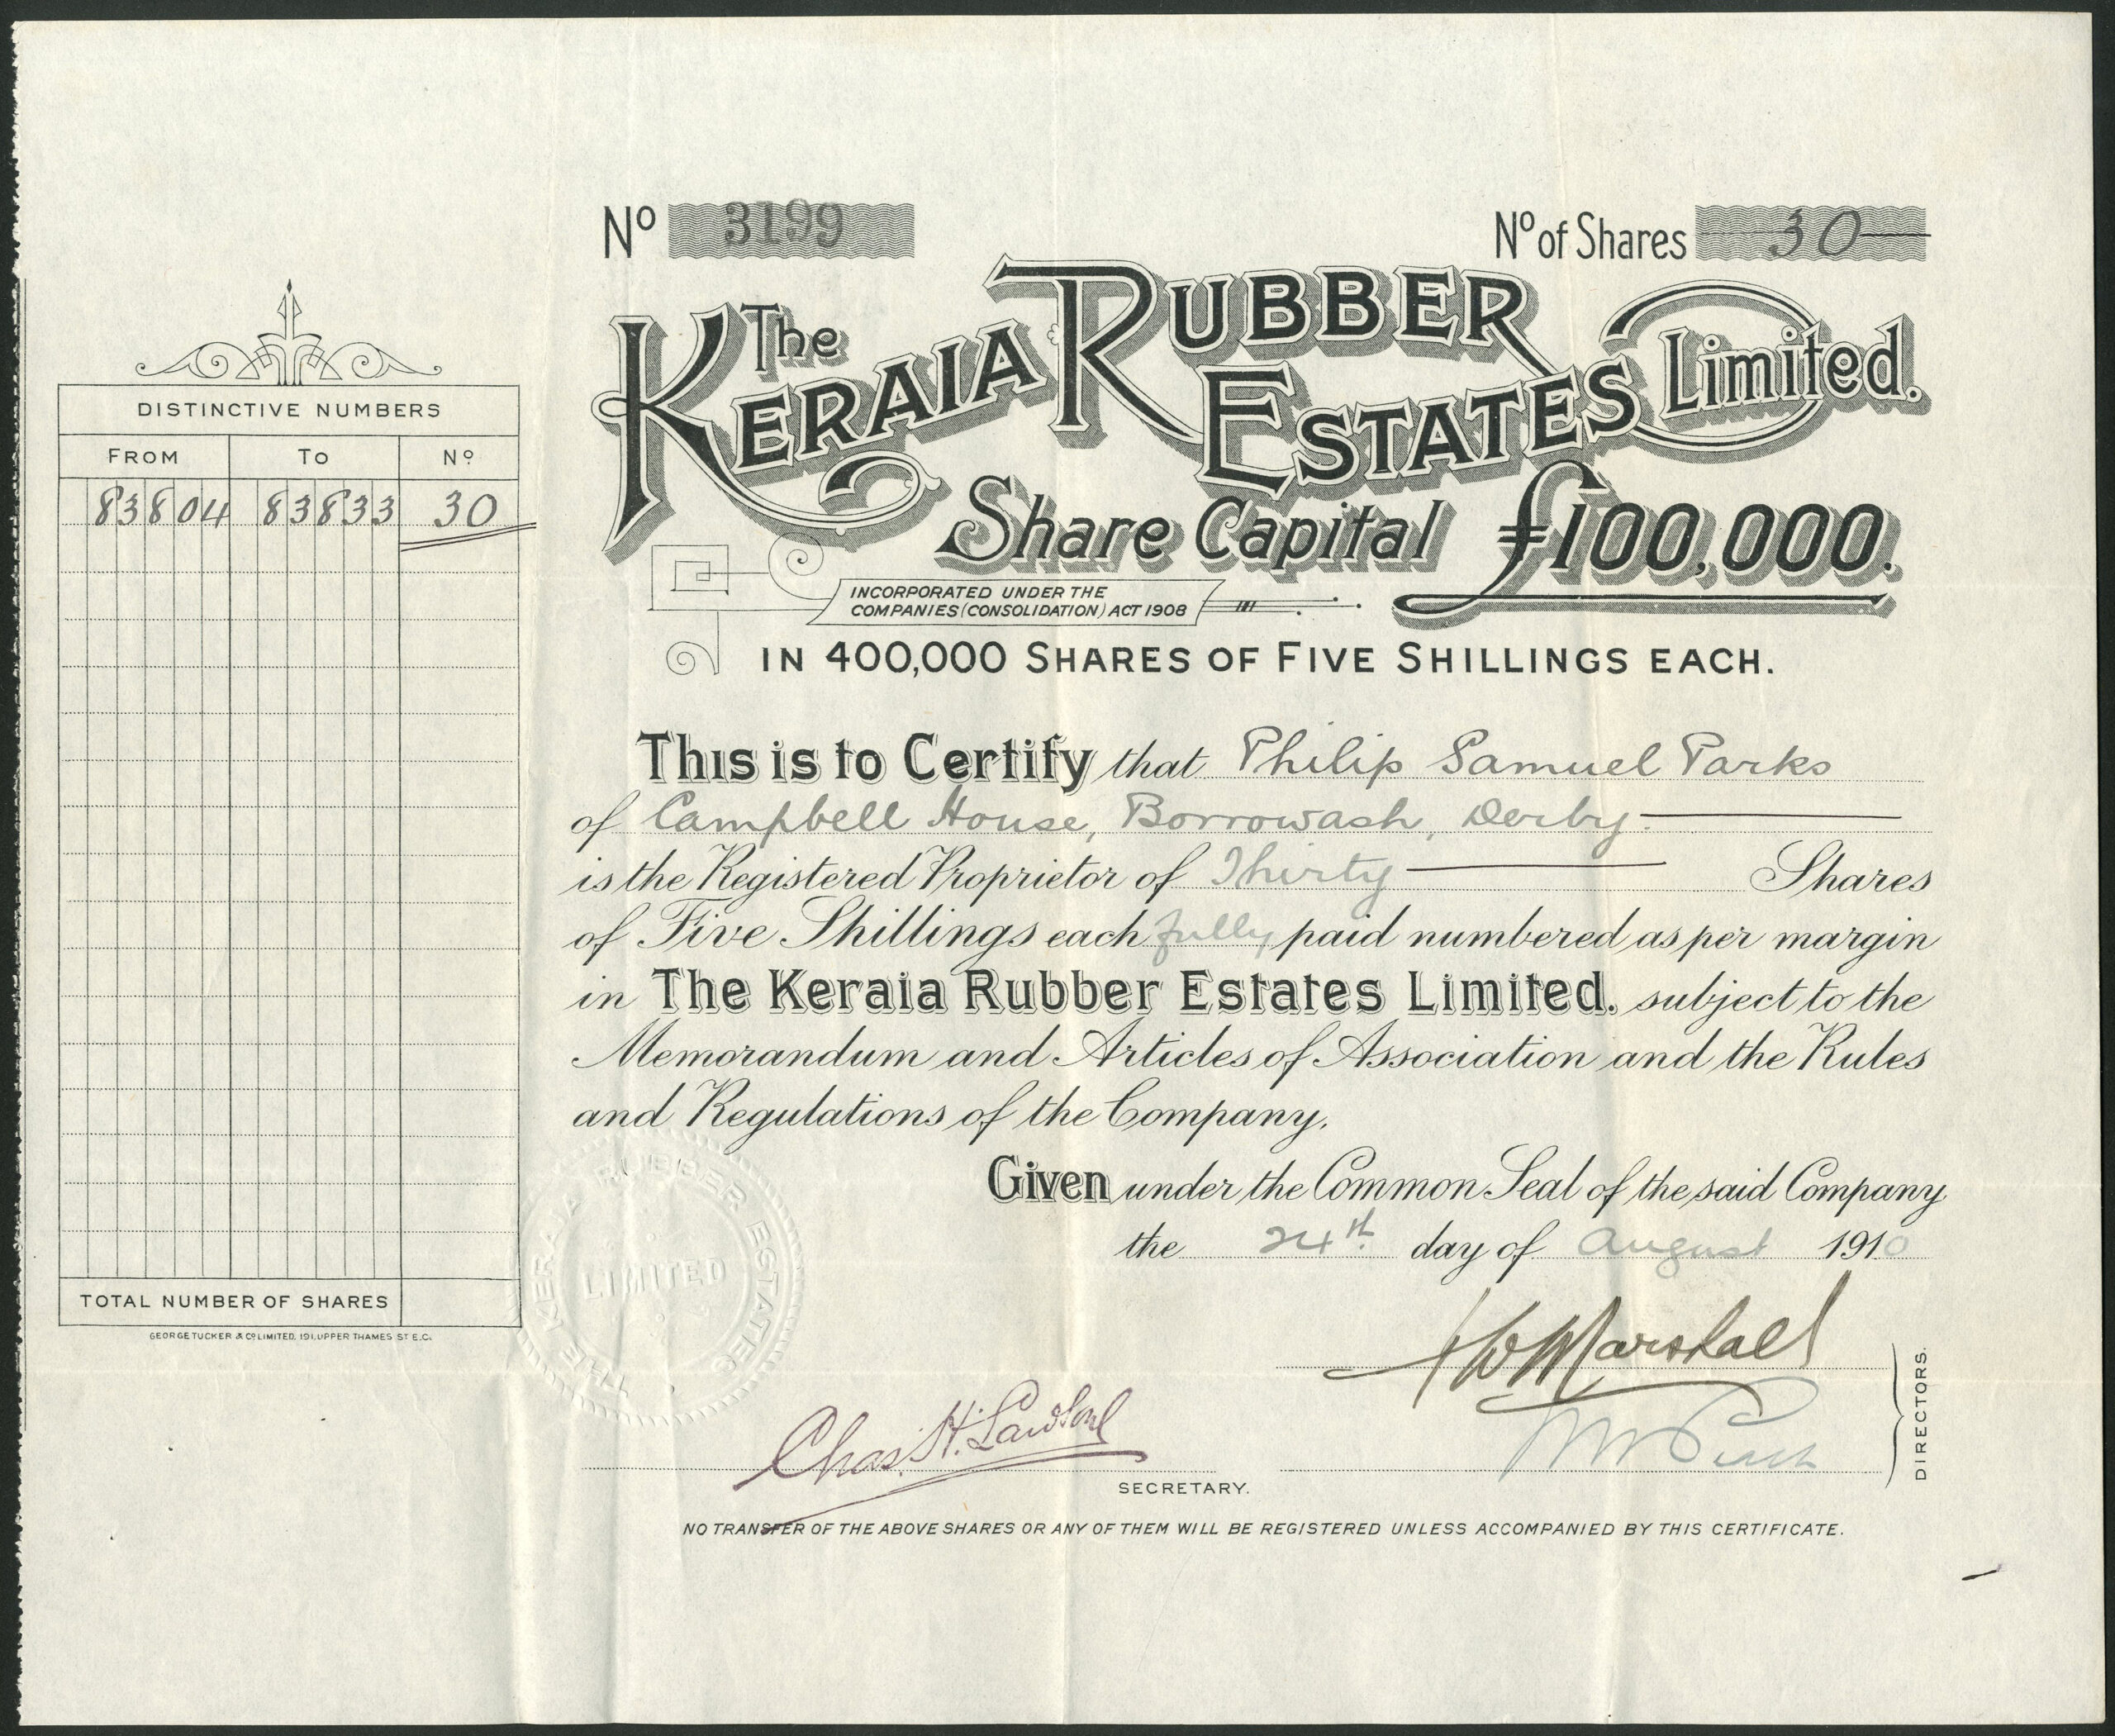 Nº 3199
Nº of Shares 30
The Keraia Rubber Estates Limited.
Share Capital £100,000.
INCORPORATED UNDER THE
COMPANIES (CONSOLIDATION) ACT 1908
IN 400,000 SHARES OF FIVE SHILLINGS EACH.
DISTINCTIVE NUMBERS
FROM TO Nº
83804 83833 30
TOTAL NUMBER OF SHARES
GEORGE TUCKER & Cº LIMITED, 191, UPPER THAMES ST E.C.
This is to Certify that Philip Samuel Parks
of Campbell House, Borrowash, Derby.
is the Registered Proprietor of Thirty Shares
of Five Shillings each fully paid numbered as per margin
in The Keraia Rubber Estates Limited. subject to the
Memorandum and Articles of Association and the Rules
and Regulations of the Company.
Given under the Common Seal of the said Company
the 24th day of August 1910
THE KERAIA RUBBER ESTATES
LIMITED
Marshall
DIRECTORS.
Chas. H.
SECRETARY.
NO TRANSFER OF THE ABOVE SHARES OR ANY OF THEM WILL BE REGISTERED UNLESS ACCOMPANIED BY THIS CERTIFICATE.